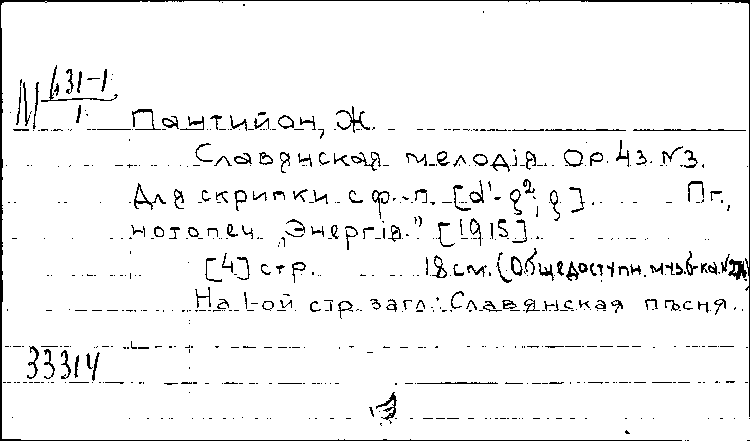 М 631-1/1
Пантийон, Ж.
Славянская мелодія. Ор. 43. N3.
Для скрипки с ф.-п. [d¹-g²; g]. Пг.,
нотопеч. „Энергія." [1915].
[4] стр. 18 см. (Общедоступн. муз. б-ка.
На 1-ой стр. загл.: Славянская пѣсня.
33314